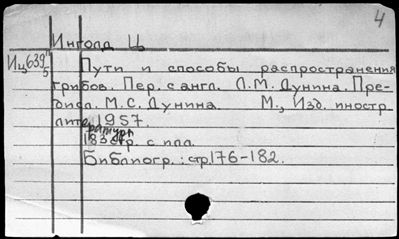 4
Инголд Ц
Иц639/5 Пути и способы распространения
грибов. Пер. с англ. Л.М. Дунина. Пре-
дисл. М.С. Дунина. М., Изд. иностр
литературы 1957.
183 стр. с илл.
Библиогр.: стр. 176-182.